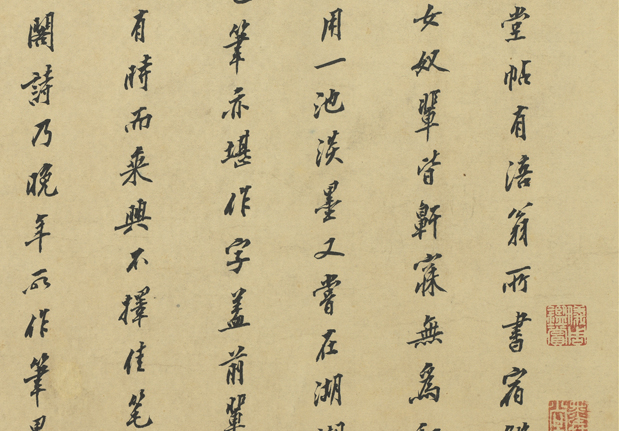 堂帖有涪翁所書宿
女奴輩皆鼾寐無為
用一池淡墨又嘗在湖
筆亦堪作字蓋前輩
有時而來興不擇佳筆
闊詩乃晚年所作筆墨